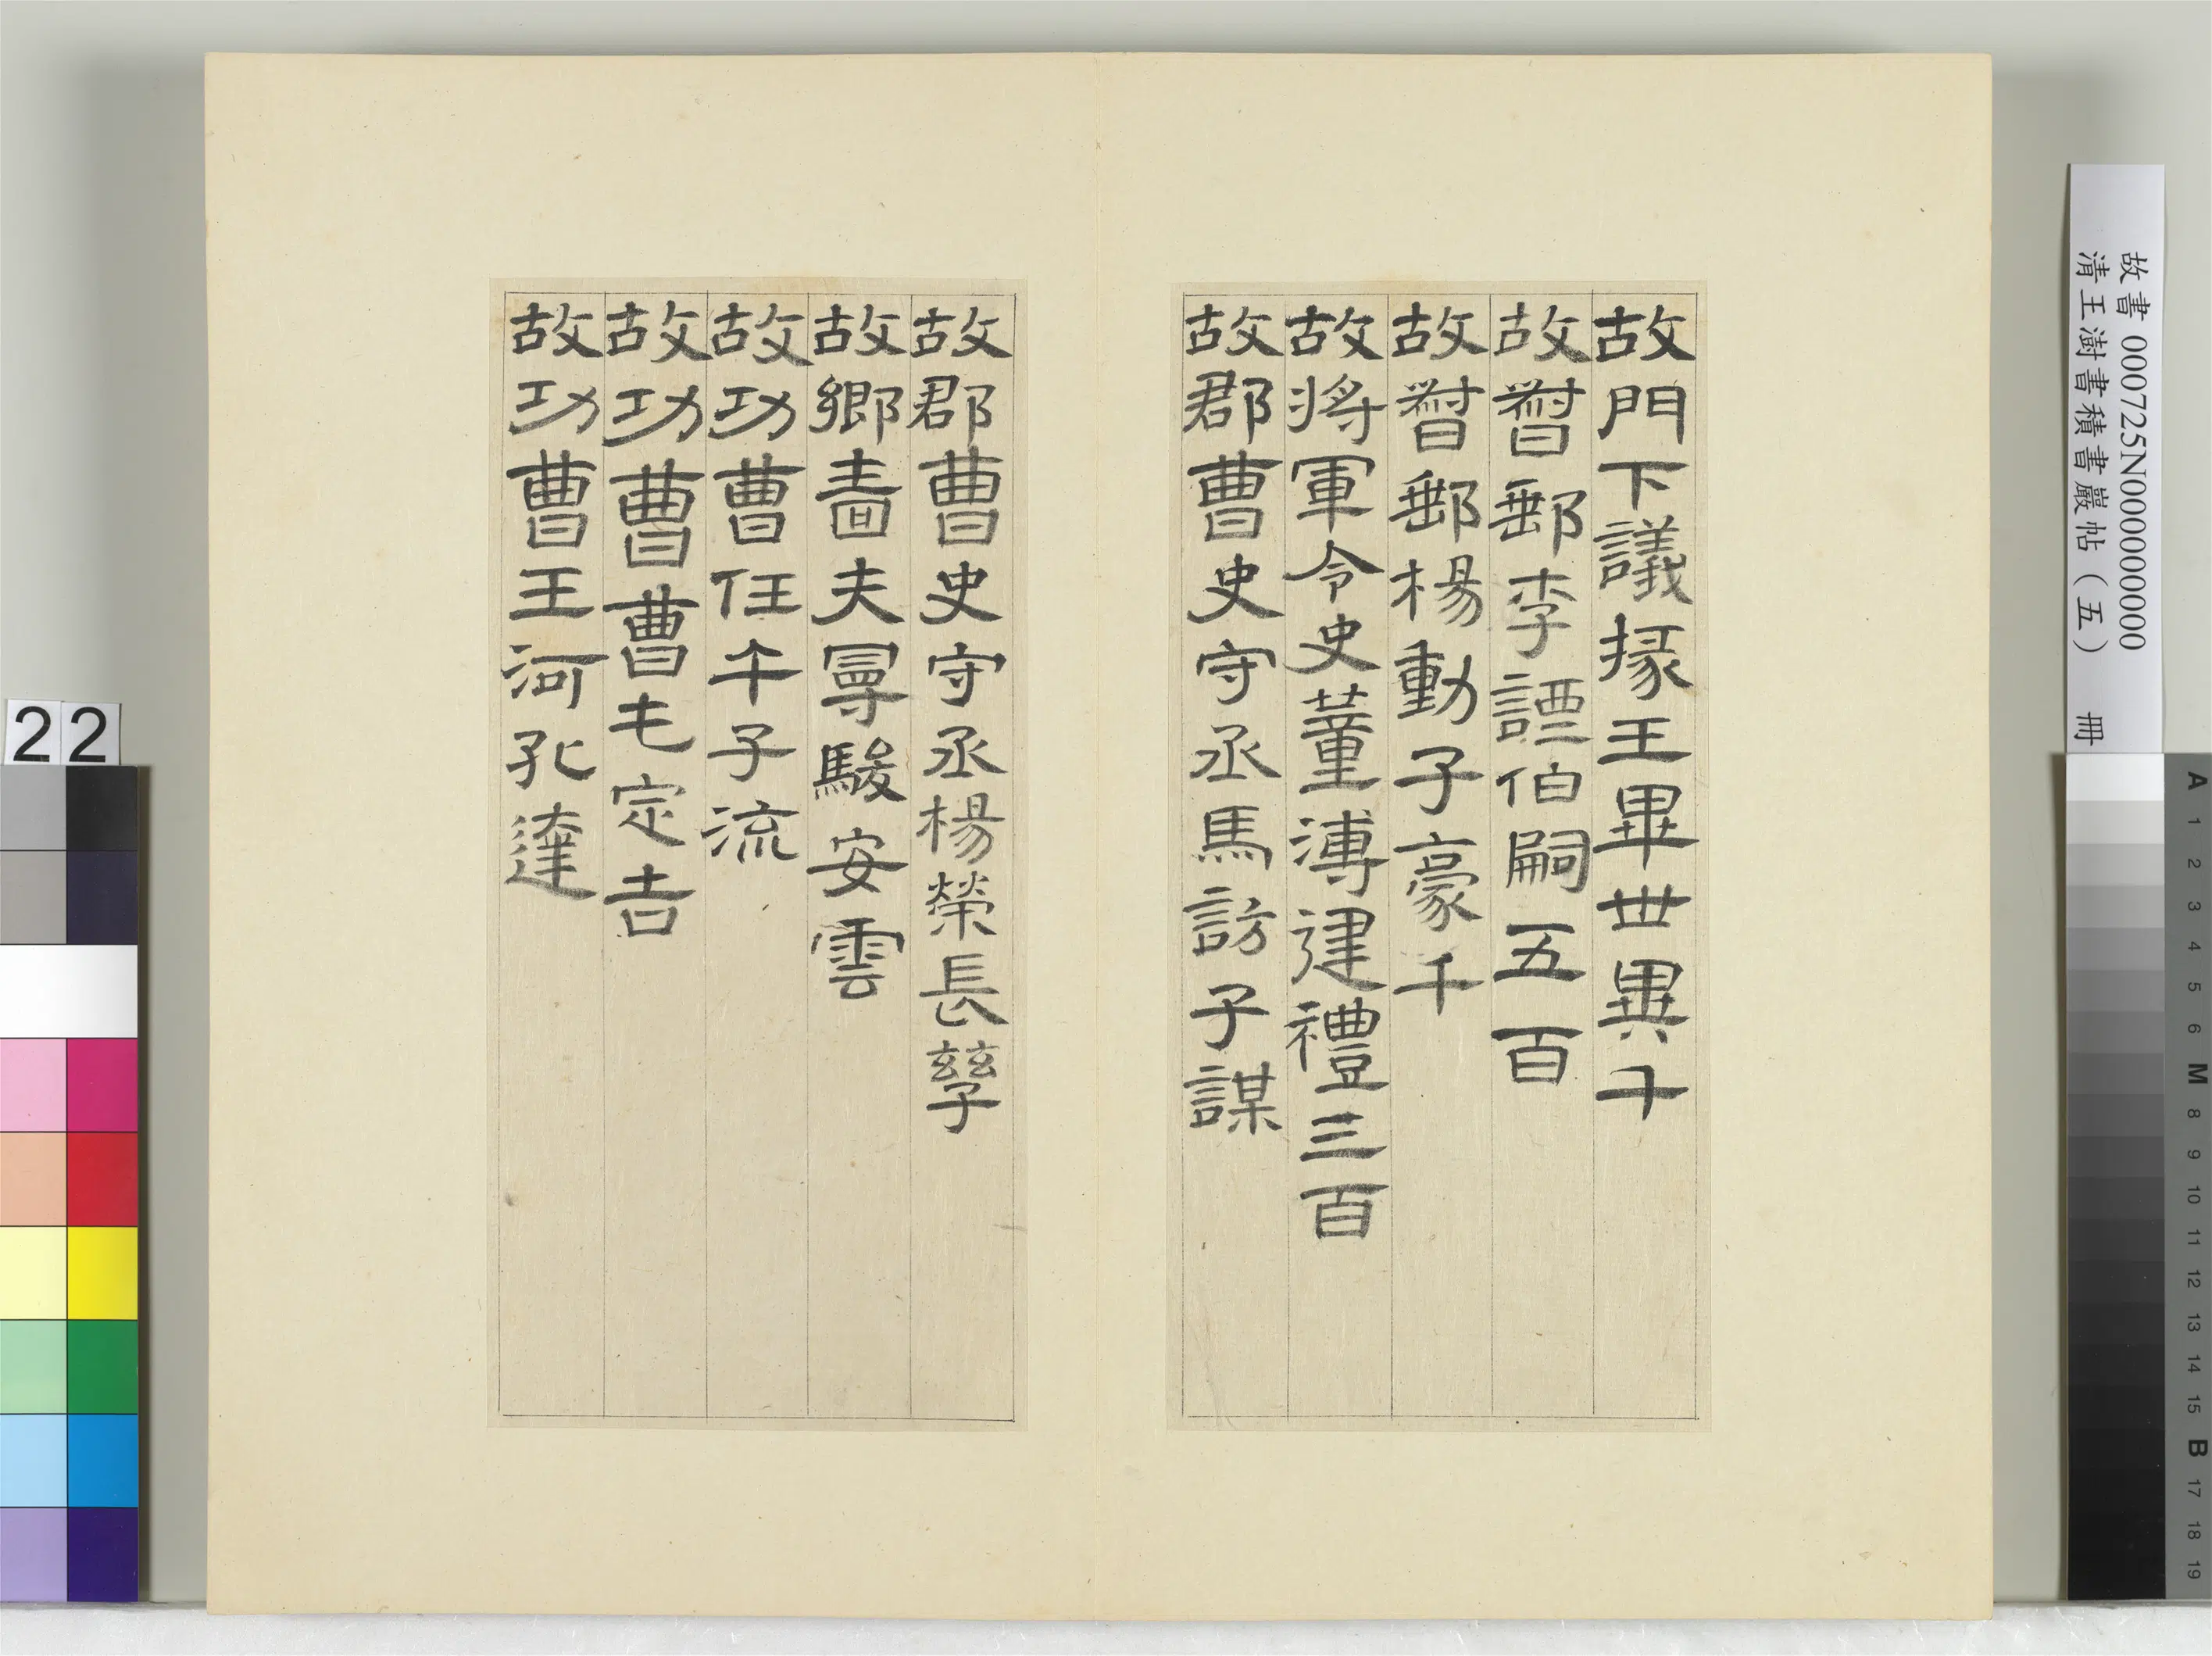 故門下議掾王畢世異千
故督郵李諲伯嗣五百
故督郵楊動子豪千
故將軍令史董溥建禮三百
故郡曹史守丞馬訪子謀
故郡曹史守丞楊榮長孳
故鄉嗇夫曼駿安雲
故功曹任午子流
故功曹曹屯定吉
故功曹王河孔達
故書 000725N000000000
清王澍書積書巖帖（五） 冊
22
A 1 2 3 4 5 6 M 8 9 10 11 12 13 14 15 B 17 18 19